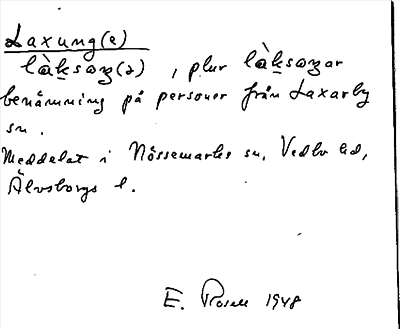 Laxung(e)
làksoŋ(ə), plur làksoŋar
benämning på personer från Laxarby
sn.
Meddelat i Nössemarks sn, Vedbo hd,
Älvsborgs l.
E. Rosell 1948